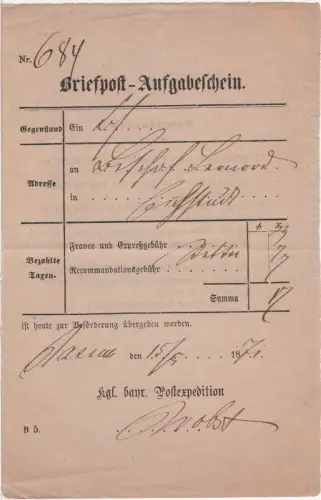 Nr. 684
Briefpost-Aufgabeschein.
Gegenstand Ein Bf....
Adresse
an Bischof Leonard
in Eichstädt
Bezahlte Taxen.
fl kr.
Franco und Expreßgebühr
Recommandationsgebühr 7
Summa
ist heute zur Beförderung übergeben worden.
den 15/5 1871.
Kgl. bayr. Postexpedition
Probst
B 5.